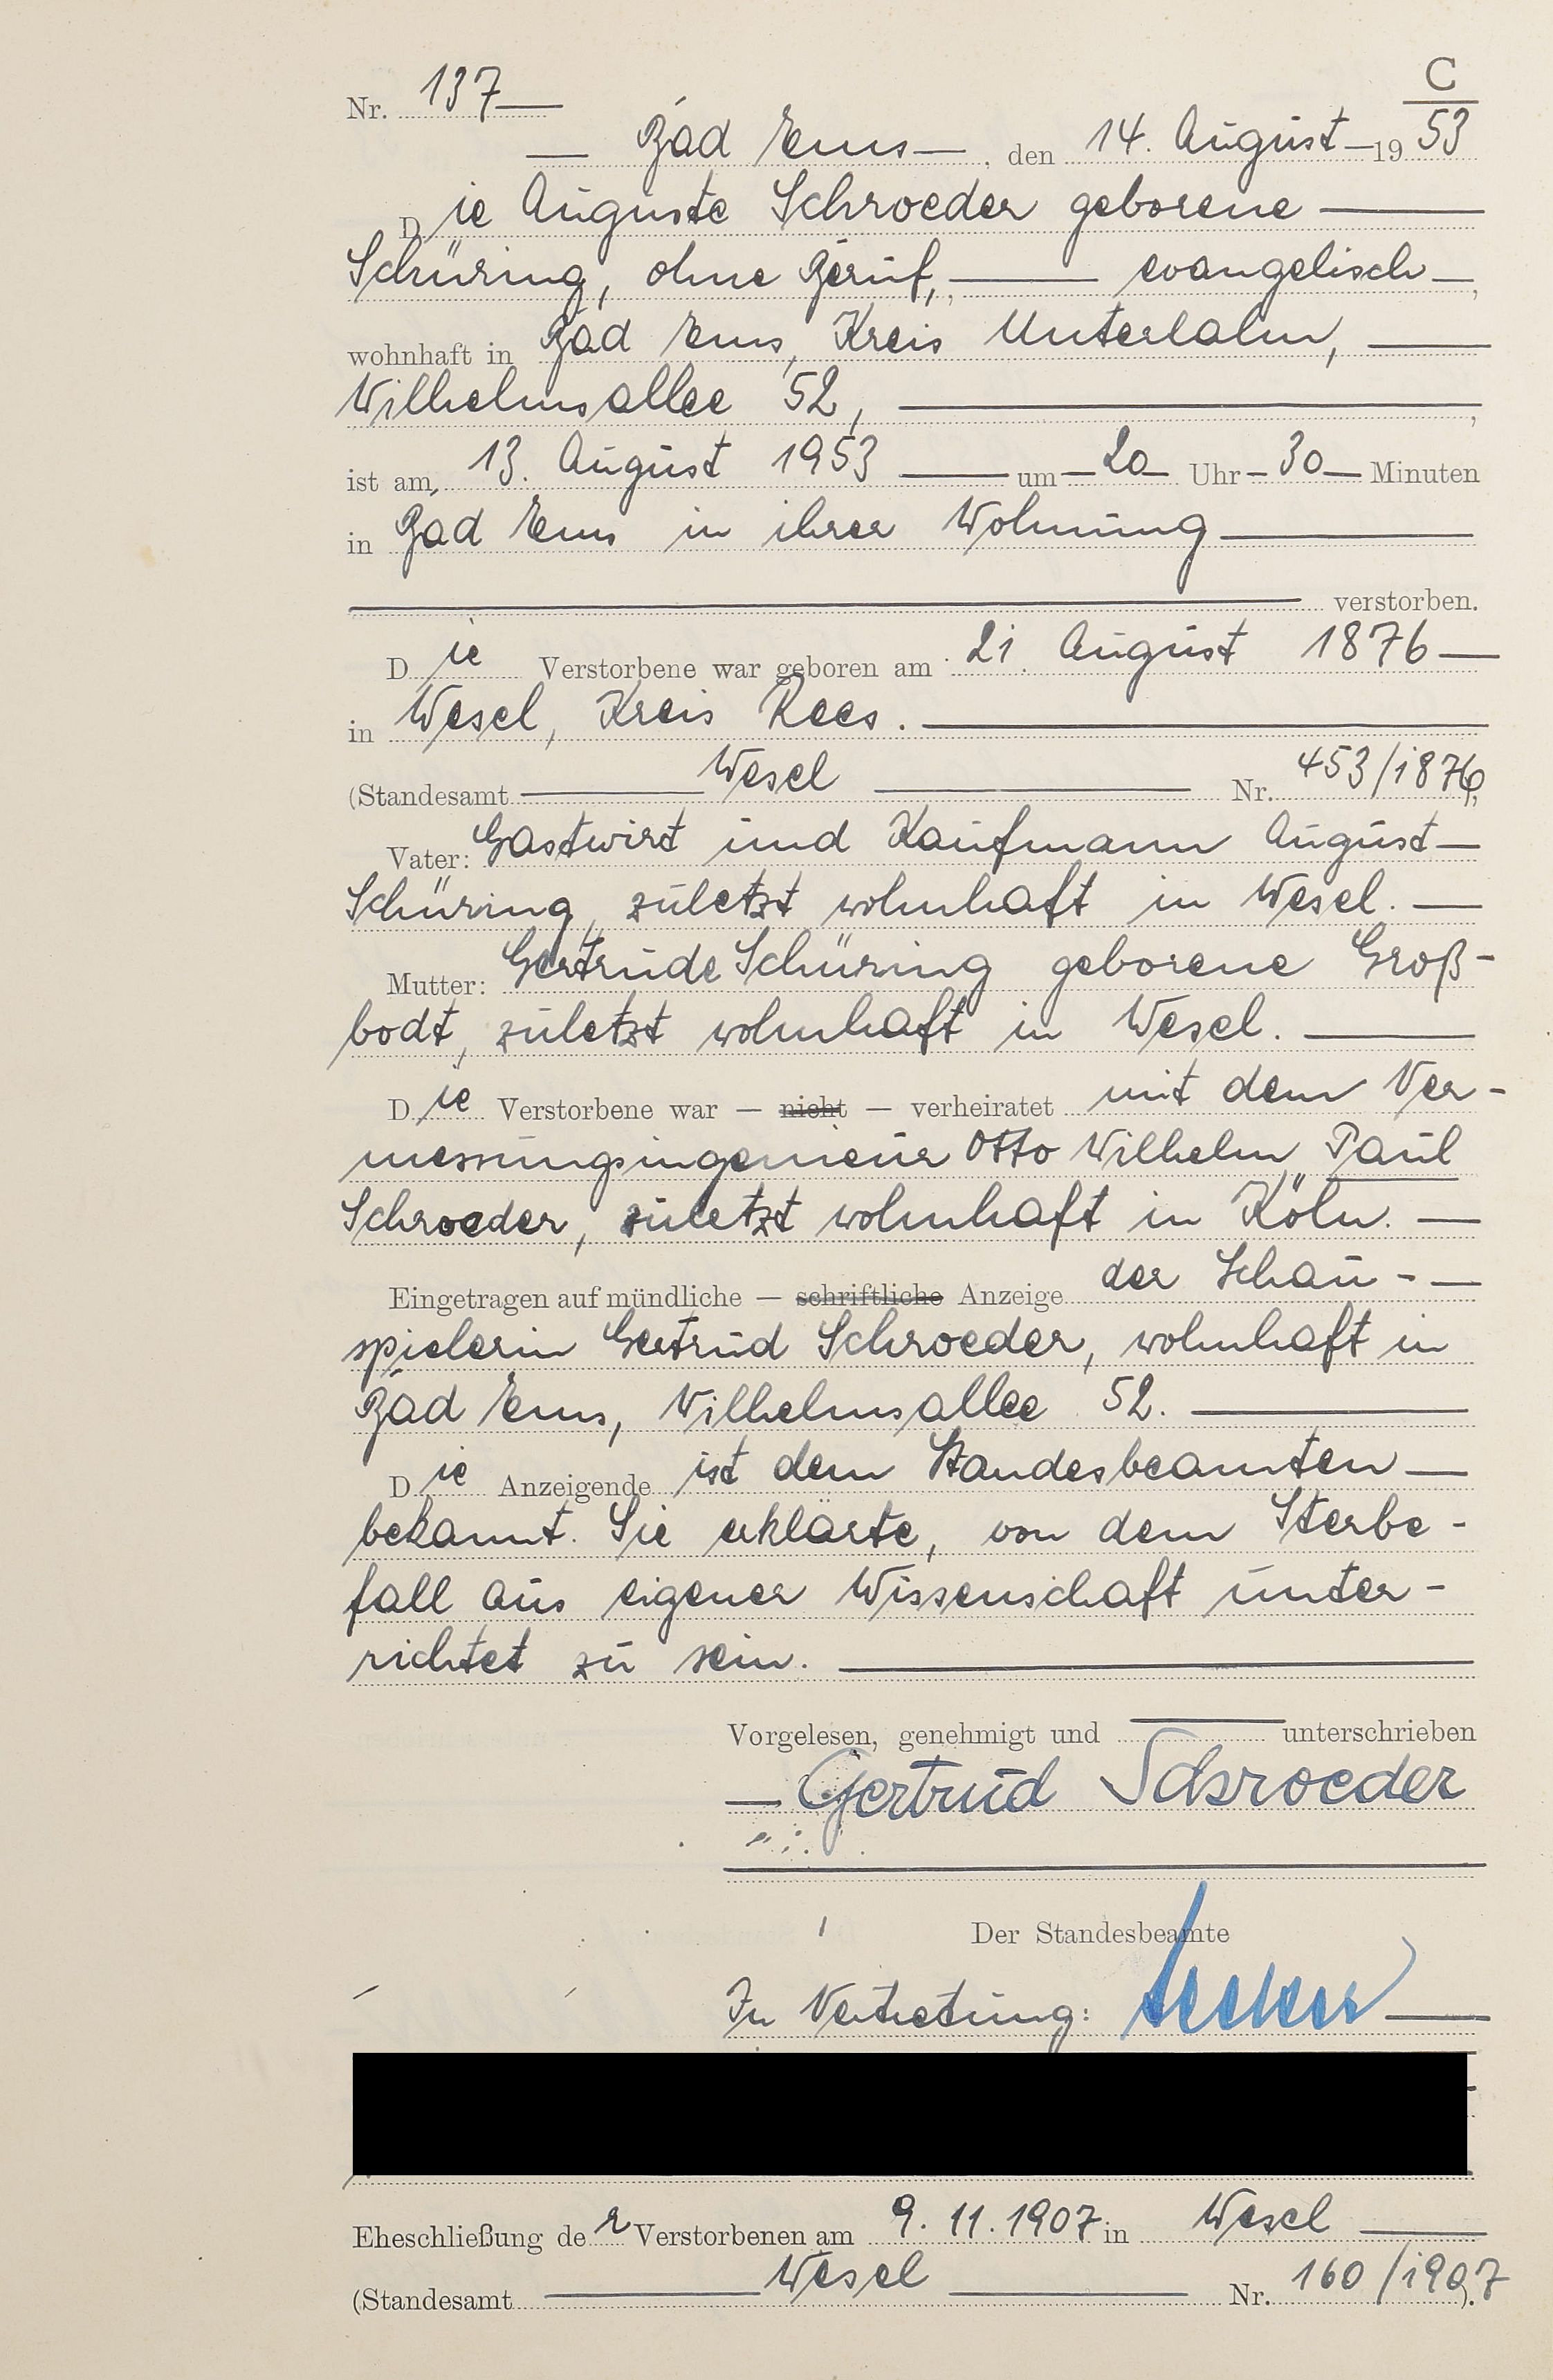 C
Nr. 137
Bad Ems, den 14. August 1953
Die Auguste Schroeder geborene
Schüring, ohne Beruf, evangelisch,
wohnhaft in Bad Ems, Kreis Unterlahn,
Wilhelmsallee 52,
ist am 13. August 1953 um 20 Uhr 30 Minuten
in Bad Ems in ihrer Wohnung
verstorben.
Die Verstorbene war geboren am 21. August 1876
in Wesel, Kreis Rees.
(Standesamt Wesel Nr. 453/1876),
Vater: Gastwirt und Kaufmann August
Schüring, zuletzt wohnhaft in Wesel.
Mutter: Gertrude Schüring geborene Groß-
bodt, zuletzt wohnhaft in Wesel.
Die Verstorbene war — nicht — verheiratet mit dem Ver-
messungsingenieur Otto Wilhelm Paul
Schroeder, zuletzt wohnhaft in Köln.
Eingetragen auf mündliche — schriftliche Anzeige der Schau-
spielerin Gertrud Schroeder, wohnhaft in
Bad Ems, Wilhelmsallee 52.
Die Anzeigende ist dem Standesbeamten
bekannt. Sie erklärte, von dem Sterbe-
fall aus eigener Wissenschaft unter-
richtet zu sein.
Vorgelesen, genehmigt und unterschrieben
Gertrud Schroeder
Der Standesbeamte
In Vertretung:
Eheschließung der Verstorbenen am 9. 11. 1907 in Wesel
(Standesamt Wesel Nr. 160/1907).